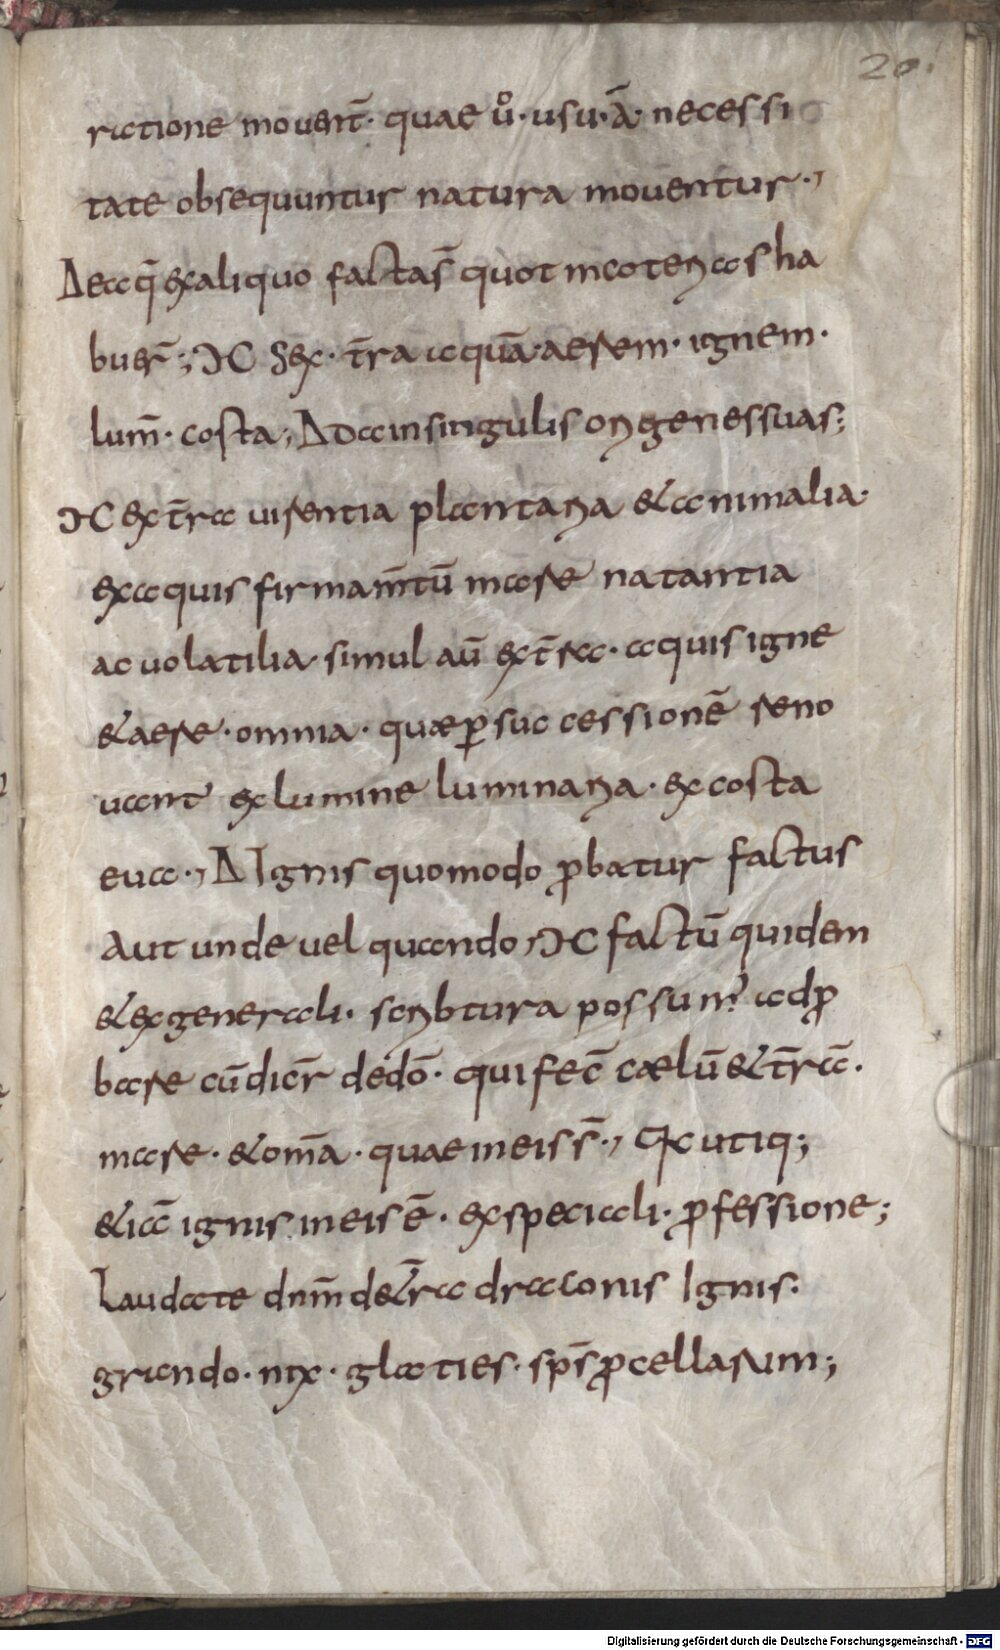 20.
rictione mouent̄· quae uͦ· usu·ā· necessi
tate obsequuntur natura mouentur·,
Δ ea q̄ ex aliquo facta s̄ quot materias ha
buer̄; M sex· t̄ra aquā· aerem· ignem·
lum̄· costa; Δ Da in singulis origenes suas;
M ex t̄ra uirentia plantaria & animalia·
ex aquis firmam̄tū mare natantia
ac uolatilia· simul aū ex t̄ra· aquis igne
& aere· omnia· quae p̱ successionē reno
uant ex lumine luminaria· ex costa
eua·, Δ Ignis quomodo p̱batur factus
Aut unde uel quando, M factū quidem
& ex generali· scribtura possum? ad p̱
bare cū dicr̄ de dō· qui fec̄ caelū & t̄rā·
mare· & om̄a· quae in eis s̄·, Ex utiq;
& iā ignis in eis ē· ex speciali· p̱fessione;
Laudate dnm̄ de t̄ra dracones Ignis·
grando· nix· glaties· sps̄ p̱cellarum;
Digitalisierung gefördert durch die Deutsche Forschungsgemeinschaft - DFG